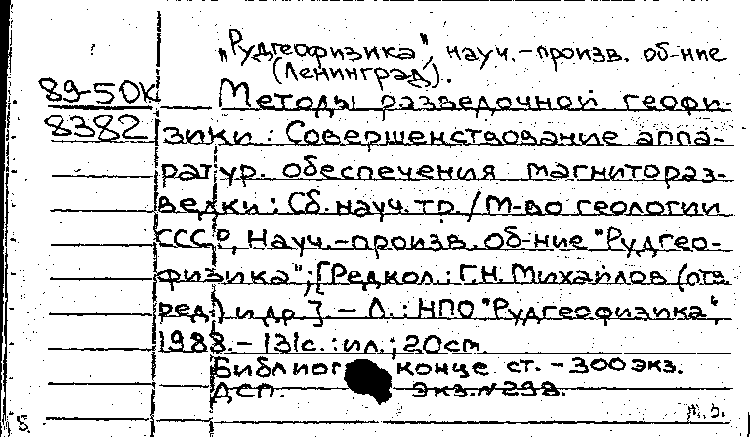 „Рудгеофизика", науч.-произв. об-ние
(Ленинград).
89-50К Методы разведочной геофи-
8382 зики: Совершенствование аппа-
ратур. обеспечения магнитораз-
ведки: Сб. науч. тр. / М-во геологии
СССР, Науч.-произв. об-ние "Рудгео-
физика"; [Редкол.: Г.Н. Михайлов (отв.
ред.) и др.]. - Л.: НПО "Рудгеофизика",
1988. - 131с.: ил.; 20см.
Библиог конце ст. - 300 экз.
ДСП. Экз. № 298.